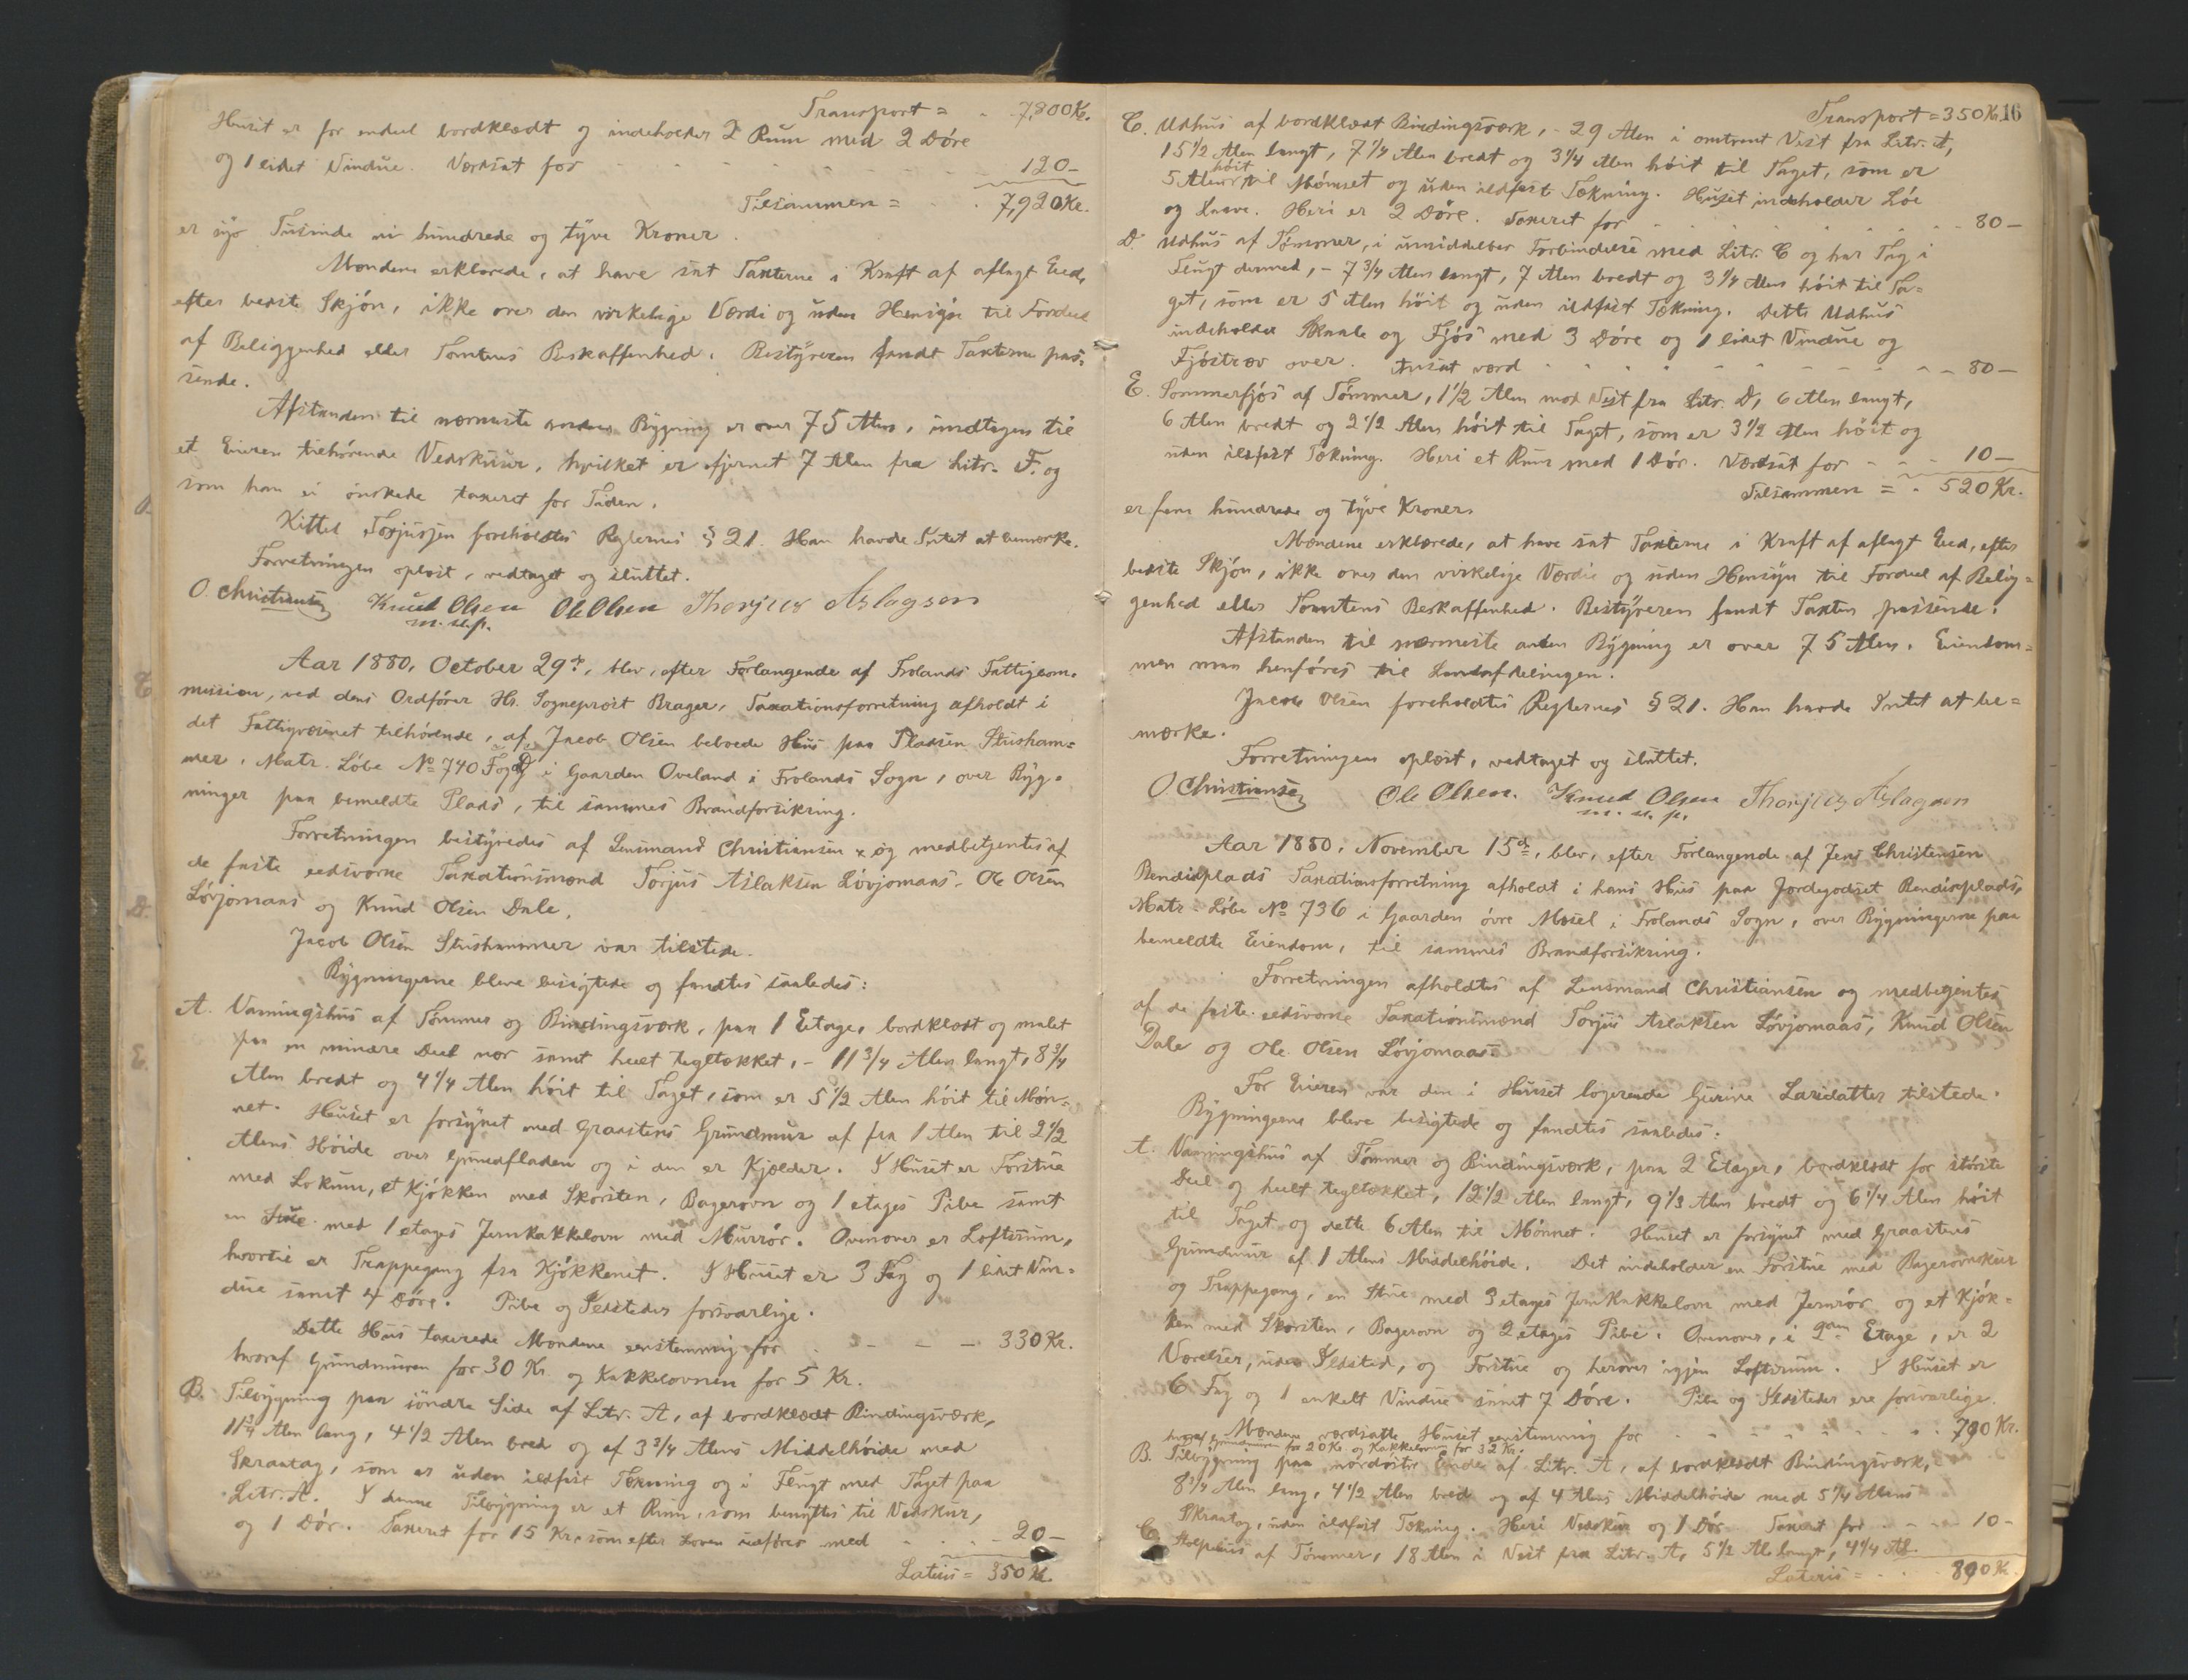 Transport = - 7,800 Kr.
Huset er for endeel bordklædt og indeholder 2 Rum med 2 Döre
og 1 lidet Vindue. Værdsat for - - - 120 -
Tilsammen = - . 7,920 Kr.
er syv Tusinde ni hundrede og tyve Kroner.
Mændene erklærede, at have sat Taxterne i Kraft af aflagt Eed,
efter bedste Skjön, ikke over den virkelige Værdi og uden Hensyn til Fordeel
af Beliggenhed eller Tomtens Beskaffenhed. Bestyreren fandt Taxterne pas-
sende.
Afstanden til nærmeste anden Bygning er over 75 Alen, undtagen til
et Eieren tilhörende Vedskuur, hvilket er fjernet 7 Alen fra Litr. F. og
som han ei önskede taxeret for Tiden.
Kittel Torjusjen foreholdtes Reglernes § 21. Han havde Intet at bemærke.
Forretningen oplæst, vedtaget og sluttet.
O. Christiansen Knud Olsen Ole Olsen Thorjus Aslagson
m. u. p.
Aar 1880, October 29de, blev, efter Forlangende af Frolands Fattigcom-
mission, ved dens Ordförer Hr. Sogneprost Brager, Taxationsforretning afholdt i
det Fattigvæsenet tilhörende, af Jacob Olsen beboede Hus paa Pladsen Stusham-
mer, Matr. Löbe No 740 F og G i Gaarden Oveland i Frolands Sogn, over Byg-
ninger paa bemeldte Plads, til sammes Brandforsikring.
Forretningen bestyredes af Lensmand Christiansen og medbetjentes af
de faste eedsvorne Taxationsmænd Torjus Aslaksen Lövjomaas, Ole Olsen
Lövjomaas og Knud Olsen Dale.
Jacob Olsen Stushammer var tilstede.
Bygningerne bleve besigtede og fandtes saaledes:
A. Vaaningshus af Tömmer og Bindingsværk, paa 1 Etage, bordklædt og malet
paa en mindre Deel nær samt heelt tegltækket, - 11 3/4 Alen langt, 8 3/4
Alen bredt og 4 1/4 Alen höit til Taget, som er 5 1/2 Alen höit til Mön-
net. Huset er forsynet med Graastens Grundmur af fra 1 Alen til 2 1/2
Alens Höide over Grundfladen og i den er Kjælder. I Huset er Forstue
med Lokum, et Kjökken med Skorsten, Bagerovn og 1 etages Pibe samt
en Stue med 1 etages Jernkakkelovn med Murrör. Ovenover er Loftsrum,
hvortil er Trappegang fra Kjökkenet. I Huset er 3 Fag og 1 lidet Vin-
due samt 4 Döre. Pibe og Ildsteder forsvarlige.
Dette Hus taxerede Mændene eenstemmig for - - - 330 Kr.
hvoraf Grundmuren for 30 Kr. og Kakkelovnen for 5 Kr.
B. Tilbygning paa söndre Side af Litr. A, af bordklædt Bindingsværk,
11 3/4 Alen lang, 4 1/2 Alen bred og af 3 3/4 Alens Middelhöide med
Skraatag, som er uden ildfast Tækning og i Flugt med Taget paa
Litr. A. I denne Tilbygning er et Rum, som benyttes til Vedskur,
og 1 Dör. Taxeret for 15 Kr., som efter Loven udföres med - - 20 -
Latus = 350 Kr.
Transport = 350 Kr. 16
C. Udhus af bordklædt Bindingsværk, - 29 Alen i omtrent Vest fra Litr. A,
15 1/2 Alen langt, 7 1/4 Alen bredt og 3 1/4 Alen höit til Taget, som er
5 Alen höit til Mönnet og uden ildfast Tækning. Huset indeholder Löe
og Laave. Heri er 2 Döre. Taxeret for - - - 80 -
D. Udhus af Tömmer, i umiddelbar Forbindelse med Litr. C og har Tag i
Flugt dermed, - 7 3/4 Alen langt, 7 Alen bredt og 3 1/4 Alen höit til Ta-
get, som er 5 Alen höit og uden ildfast Tækning. Dette Udhus
indeholder Skaale og Fjös med 3 Döre og 1 lidet Vindue og
Fjöstræv over. Ansat værd - - - 80 -
E. Sommerfjös af Tömmer, 1 1/2 Alen mod Vest fra Litr. D, 6 Alen langt,
6 Alen bredt og 2 1/2 Alen höit til Taget, som er 3 1/2 Alen höit og
uden ildfast Tækning. Heri et Rum med 1 Dör. Værdsat for - - 10 -
Tilsammen = . 520 Kr.
er fem hundrede og tyve Kroner.
Mændene erklærede, at have sat Taxterne i Kraft af aflagt Eed, efter
bedste Skjön, ikke over den virkelige Værdie og uden Hensyn til Fordeel af Belig-
genhed eller Tomtens Beskaffenhed. Bestyreren fandt Taxten passende.
Afstanden til nærmeste anden Bygning er over 75 Alen. Eiendom-
men maa henföres til Landafdelingen.
Jacob Olsen foreholdtes Reglernes § 21. Han havde Intet at be-
mærke.
Forretningen oplæst, vedtaget og sluttet.
O Christiansen Ole Olsen. Knud Olsen Thorjus Aslagson
m. u. p.
Aar 1880, November 15de, blev, efter Forlangende af Jens Christensen
Bendiksplads Taxationsforretning afholdt i hans Hus paa Jordegodset Bendixplads,
Matr. Löbe No 736 i Gaarden övre Mösel i Frolands Sogn, over Bygningerne paa
bemeldte Eiendom, til sammes Brandforsikring.
Forretningen afholdtes af Lensmand Christiansen og medbetjentes
af de faste eedsvorne Taxationsmænd Torjus Aslaksen Lövjomaas, Knud Olsen
Dale og Ole Olsen Lövjomaas.
For Eieren var den i Huset logerende Gurine Larsdatter tilstede.
Bygningerne bleve besigtede og fandtes saaledes:
A. Vaaningshus af Tömmer og Bindingsværk, paa 2 Etager, bordklædt for störste
Deel og heelt tegltækket, 12 1/2 Alen langt, 9 1/3 Alen bredt og 6 1/4 Alen höit
til Taget og dette 6 Alen til Mönnet. Huset er forsynet med Graastens
Grundmur af 1 Alens Middelhöide. Det indeholder en Forstue med Bagerovnskur
og Trappegang, en Stue med 3 etages Jernkakkelovn med Jernrör og et Kjök-
ken med Skorsten, Bagerovn og 2 etages Pibe. Ovenover, i 2den Etage, er 2
Værelser, uden Ildsted, og Forstue og herover igjen Loftsrum. I Huset er
6 Fag og 1 enkelt Vindue samt 7 Döre. Pibe og Ildsteder ere forsvarlige.
Mændene værdsatte Huset eenstemmig for - - - 790 Kr.
hvoraf Grundmuren for 20 Kr. og Kakkelovnen for 32 Kr.
B. Tilbygning paa nordöstre Ende af Litr. A, af bordklædt Bindingsværk,
8 3/4 Alen lang, 4 1/2 Alen bred og af 4 Alens Middelhöide med 5 1/4 Alens
Skraatag, uden ildfast Tækning. Heri Vedskur og 1 Dör. Taxeret for - - 10 -
C. Stolpehus af Tömmer, 18 Alen i Vest fra Litr. A, 5 1/2 Al. langt, 4 1/4 Al.
Lateris = - - 800 Kr.